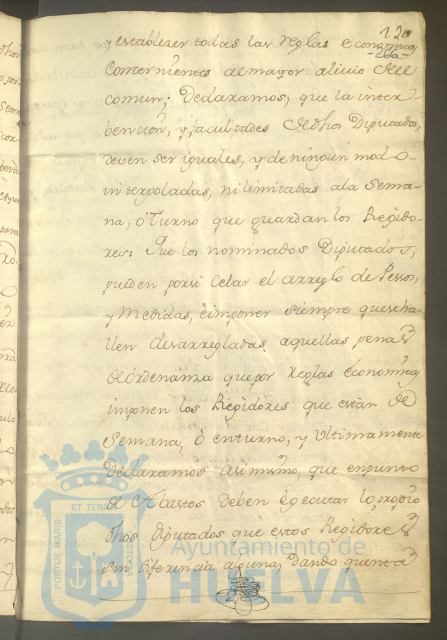 120
266
y establezer todas las reglas economicas
Conzernientes al mayor alivio del
comun; Declaramos, que la inter-
bencion, y facultades dedhos Diputados,
deven ser iguales, y de ningun modo
interpoladas, ni limitadas ala Sema-
na, ó Turno que guardan los Regido-
res: Que los nominados Diputados,
pueden porsi Celar el arreglo de Pesos,
y Medidas, é imponer siempre quese ha-
llen desarregladas aquellas penas
de ordenanza que por Reglas économicas
imponen los Regidores que están de
Semana, ó enturno, y ultimamente
Declaramos asimismo, que en punto
de Abastos deben egecutar lo proprio
dhos Diputados que estos Regidores
sin diferencia alguna, dando quenta
PORTUS MARIS ET TERRAE CUSTODIA
Ayuntamiento de
HUELVA